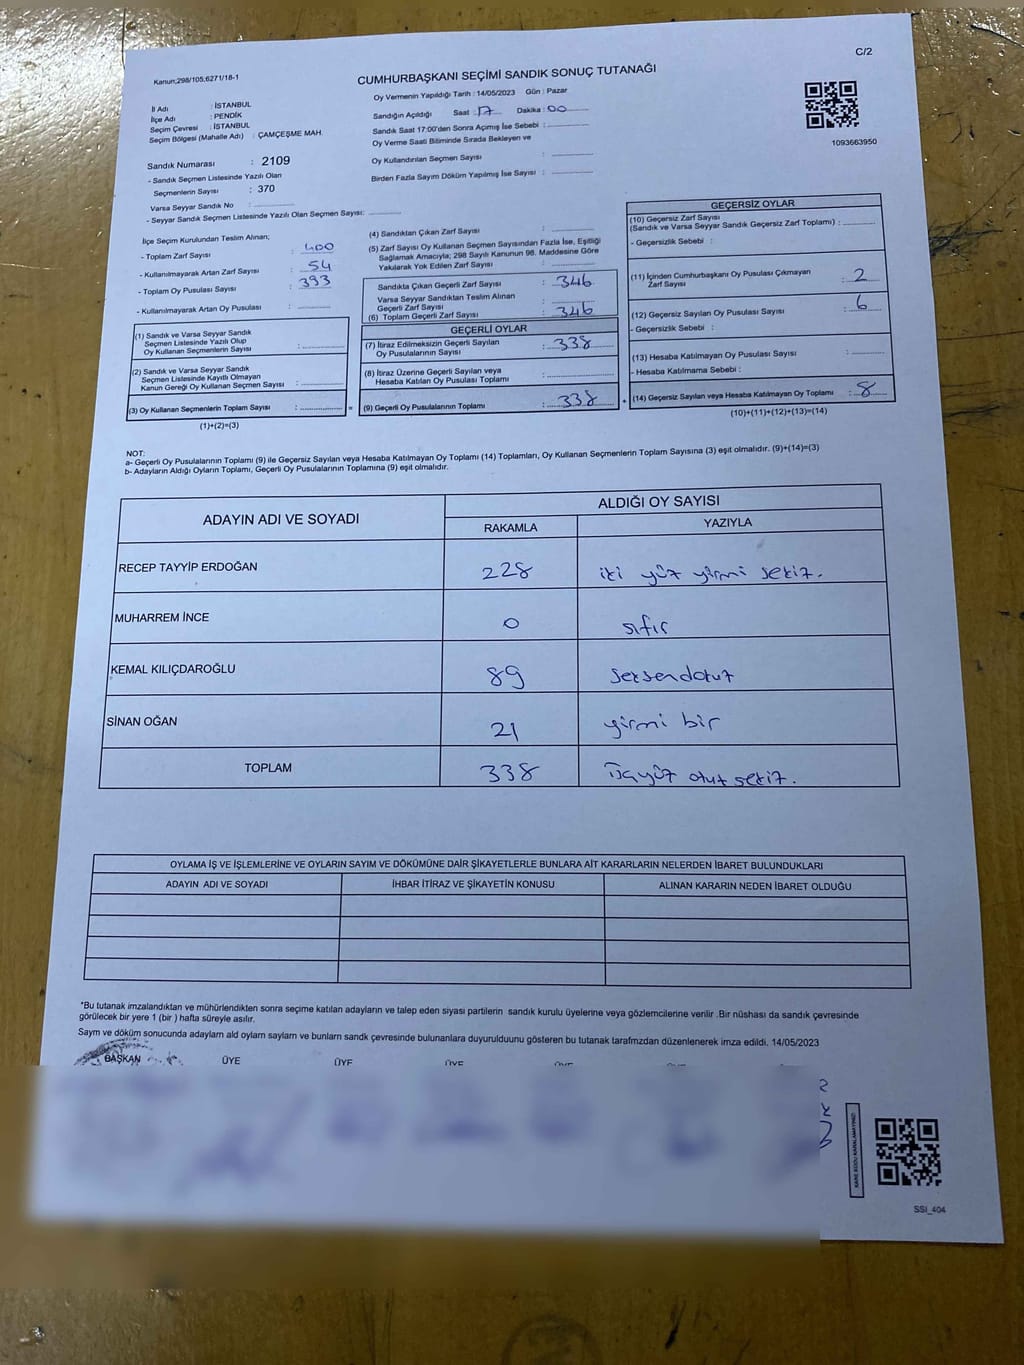 C/2
Kanun:298/105;6271/18-1
CUMHURBAŞKANI SEÇİMİ SANDIK SONUÇ TUTANAĞI
İl Adı : İSTANBUL
İlçe Adı : PENDİK
Seçim Çevresi : İSTANBUL
Seçim Bölgesi (Mahalle Adı) : ÇAMÇEŞME MAH.
Sandık Numarası : 2109
- Sandık Seçmen Listesinde Yazılı Olan
Seçmenlerin Sayısı : 370
Varsa Seyyar Sandık No :
- Seyyar Sandık Seçmen Listesinde Yazılı Olan Seçmen Sayısı:
Oy Vermenin Yapıldığı Tarih : 14/05/2023 Gün : Pazar
Sandığın Açıldığı Saat : 17 Dakika : 00
Sandık Saat 17:00'den Sonra Açımış İse Sebebi :
Oy Verme Saati Bitiminde Sırada Bekleyen ve
Oy Kullandırılan Seçmen Sayısı :
Birden Fazla Sayım Döküm Yapılmış İse Sayısı :
1093663950
İlçe Seçim Kurulundan Teslim Alınan;
- Toplam Zarf Sayısı : 400
- Kullanılmayarak Artan Zarf Sayısı : 54
- Toplam Oy Pusulası Sayısı : 393
- Kullanılmayarak Artan Oy Pusulası :
(1) Sandık ve Varsa Seyyar Sandık
Seçmen Listesinde Yazılı Olup
Oy Kullanan Seçmenlerin Sayısı :
(2) Sandık ve Varsa Seyyar Sandık
Seçmen Listesinde Kayıtlı Olmayan
Kanun Gereği Oy Kullanan Seçmen Sayısı :
(3) Oy Kullanan Seçmenlerin Toplam Sayısı :
(1)+(2)=(3)
(4) Sandıktan Çıkan Zarf Sayısı :
(5) Zarf Sayısı Oy Kullanan Seçmen Sayısından Fazla İse, Eşitliği
Sağlamak Amacıyla; 298 Sayılı Kanunun 98. Maddesine Göre
Yakılarak Yok Edilen Zarf Sayısı :
Sandıkta Çıkan Geçerli Zarf Sayısı : 346
Varsa Seyyar Sandıktan Teslim Alınan
Geçerli Zarf Sayısı :
(6) Toplam Geçerli Zarf Sayısı : 346
GEÇERLİ OYLAR
(7) İtiraz Edilmeksizin Geçerli Sayılan
Oy Pusulalarının Sayısı : 338
(8) İtiraz Üzerine Geçerli Sayılan veya
Hesaba Katılan Oy Pusulası Toplamı :
= (9) Geçerli Oy Pusulalarının Toplamı : 338 +
GEÇERSİZ OYLAR
(10) Geçersiz Zarf Sayısı
(Sandık ve Varsa Seyyar Sandık Geçersiz Zarf Toplamı) :
- Geçersizlik Sebebi :
(11) İçinden Cumhurbaşkanı Oy Pusulası Çıkmayan
Zarf Sayısı : 2
(12) Geçersiz Sayılan Oy Pusulası Sayısı : 6
- Geçersizlik Sebebi :
(13) Hesaba Katılmayan Oy Pusulası Sayısı :
- Hesaba Katılmama Sebebi :
(14) Geçersiz Sayılan veya Hesaba Katılmayan Oy Toplamı : 8
(10)+(11)+(12)+(13)=(14)
NOT:
a- Geçerli Oy Pusulalarının Toplamı (9) ile Geçersiz Sayılan veya Hesaba Katılmayan Oy Toplamı (14) Toplamları, Oy Kullanan Seçmenlerin Toplam Sayısına (3) eşit olmalıdır. (9)+(14)=(3)
b- Adayların Aldığı Oyların Toplamı, Geçerli Oy Pusulalarının Toplamına (9) eşit olmalıdır.
ADAYIN ADI VE SOYADI
ALDIĞI OY SAYISI
RAKAMLA YAZIYLA
RECEP TAYYİP ERDOĞAN 228 iki yüz yirmi sekiz.
MUHARREM İNCE 0 sıfır
KEMAL KILIÇDAROĞLU 89 seksendokuz
SİNAN OĞAN 21 yirmi bir
TOPLAM 338 Üçyüz otuz sekiz.
OYLAMA İŞ VE İŞLEMLERİNE VE OYLARIN SAYIM VE DÖKÜMÜNE DAİR ŞİKAYETLERLE BUNLARA AİT KARARLARIN NELERDEN İBARET BULUNDUKLARI
ADAYIN ADI VE SOYADI İHBAR İTİRAZ VE ŞİKAYETİN KONUSU ALINAN KARARIN NEDEN İBARET OLDUĞU
*Bu tutanak imzalandıktan ve mühürlendikten sonra seçime katılan adayların ve talep eden siyasi partilerin sandık kurulu üyelerine veya gözlemcilerine verilir .Bir nüshası da sandık çevresinde
görülecek bir yere 1 (bir ) hafta süreyle asılır.
Sayım ve döküm sonucunda adayların ald oyların sayların ve bunların sandk çevresinde bulunanlara duyurulduunu gösteren bu tutanak tarafmzdan düzenlenerek imza edildi. 14/05/2023
BAŞKAN ÜYE ÜYE ÜYE
KARE KODU KARALAMAYINIZ!
SSI_404